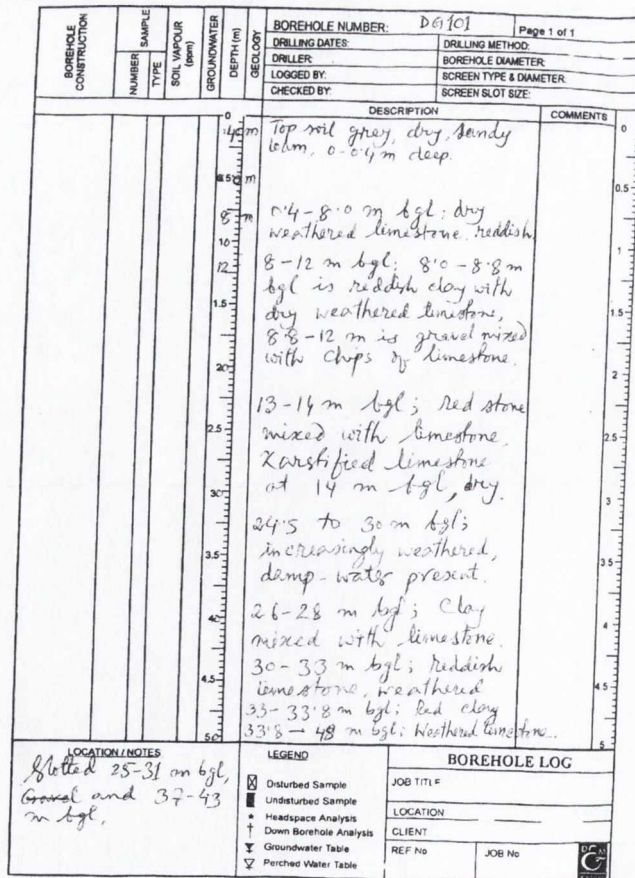 BOREHOLE CONSTRUCTION
SAMPLE
NUMBER
TYPE
SOIL VAPOUR (ppm)
GROUNDWATER
DEPTH (m)
GEOLOGY
BOREHOLE NUMBER: DG101
Page 1 of 1
DRILLING DATES:
DRILLING METHOD:
DRILLER:
BOREHOLE DIAMETER:
LOGGED BY:
SCREEN TYPE & DIAMETER:
CHECKED BY:
SCREEN SLOT SIZE:
DESCRIPTION
COMMENTS
Top soil grey, dry, sandy
loam, 0-0.4 m deep.
0.4-8.0 m bgl; dry
weathered limestone. reddish.
8-12 m bgl; 8.0-8.8 m
bgl is reddish clay with
dry weathered limestone,
8.8-12 m is gravel mixed
with chips of limestone.
13-14 m bgl; red stone
mixed with limestone.
Karstified limestone
at 14 m bgl, dry.
24.5 to 30 m bgl;
increasingly weathered,
damp-water present.
26-28 m bgl; Clay
mixed with limestone.
30-33 m bgl; Reddish
limestone, weathered
33-33.8 m bgl; Red clay
33.8 - 48 m bgl; Weathered limestone.
0
8 m
10
12
1.5
20
2.5
30
3.5
40
4.5
0
0.5
1
1.5
2
2.5
3
3.5
4
4.5
5
LOCATION / NOTES
Slotted 25-31 m bgl,
Gravel and 37-43
m bgl.
LEGEND
Disturbed Sample
Undisturbed Sample
* Headspace Analysis
† Down Borehole Analysis
Groundwater Table
Perched Water Table
BOREHOLE LOG
JOB TITLE
LOCATION
CLIENT
REF No
JOB No